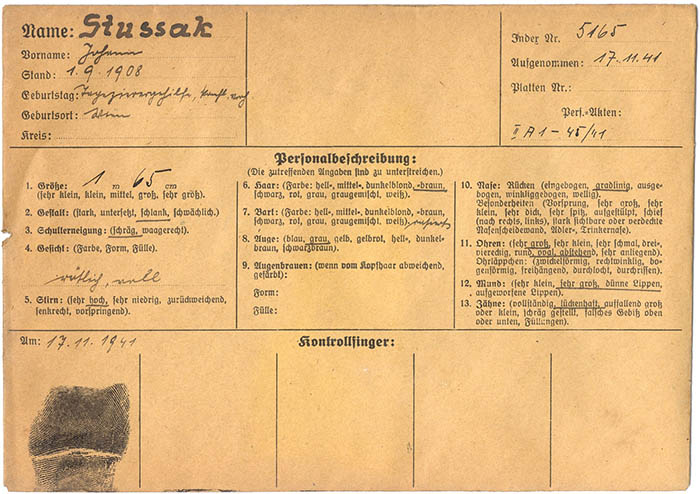 Name: Stussak
Vorname: Johann
Stand: 1.9.1908
Geburtstag: Tapezierergehilfe,
Geburtsort: Wien
Kreis:
Index Nr. 5165
Aufgenommen: 17.11.41
Platten Nr.:
Pers.-Akten:
II A 1 - 45/41
Personalbeschreibung:
(Die zutreffenden Angaben sind zu unterstreichen.)
1. Größe: 1 m 65 cm
(sehr klein, klein, mittel, groß, sehr groß).
2. Gestalt: (stark, untersetzt, schlank, schwächlich.)
3. Schulterneigung: (schräg, waagerecht).
4. Gesicht: (Farbe, Form, Fülle).
rötlich, voll
5. Stirn: (sehr hoch, sehr niedrig, zurückweichend,
senkrecht, vorspringend).
6. Haar: (Farbe: hell-, mittel-, dunkelblond, -braun,
schwarz, rot, grau, graugemischt, weiß).
7. Bart: (Farbe: hell-, mittel-, dunkelblond, -braun,
schwarz, rot, grau, graugemischt, weiß). rasiert
8. Auge: (blau, grau, gelb, gelbrot, hell-, dunkel-
braun, schwarzbraun).
9. Augenbrauen: (wenn vom Kopfhaar abweichend,
gefärbt):
Form:
Fülle:
10. Nase: Rücken (eingebogen, gradlinig, ausge-
bogen, winkliggebogen, wellig).
Besonderheiten (Vorsprung, sehr groß, sehr
klein, sehr dick, sehr spitz, aufgestülpt, schief
(nach rechts, links), stark sichtbare oder verdeckte
Nasenscheidewand, Adler-, Trinkernase).
11. Ohren: (sehr groß, klein, sehr schmal, drei-,
viereckig, rund, oval, abstehend, sehr anliegend).
Ohrläppchen: (zwickelförmig, rechtwinklig, bo-
genförmig, freihängend, durchlocht, durchrissen).
12. Mund: (sehr klein, sehr groß, dünne Lippen,
aufgeworfene Lippen).
13. Zähne: (vollständig, lückenhaft, auffallend groß
oder klein, schräg gestellt, falsches Gebiß oben
oder unten, Füllungen).
Am: 17.11.1941
Kontrollfinger: